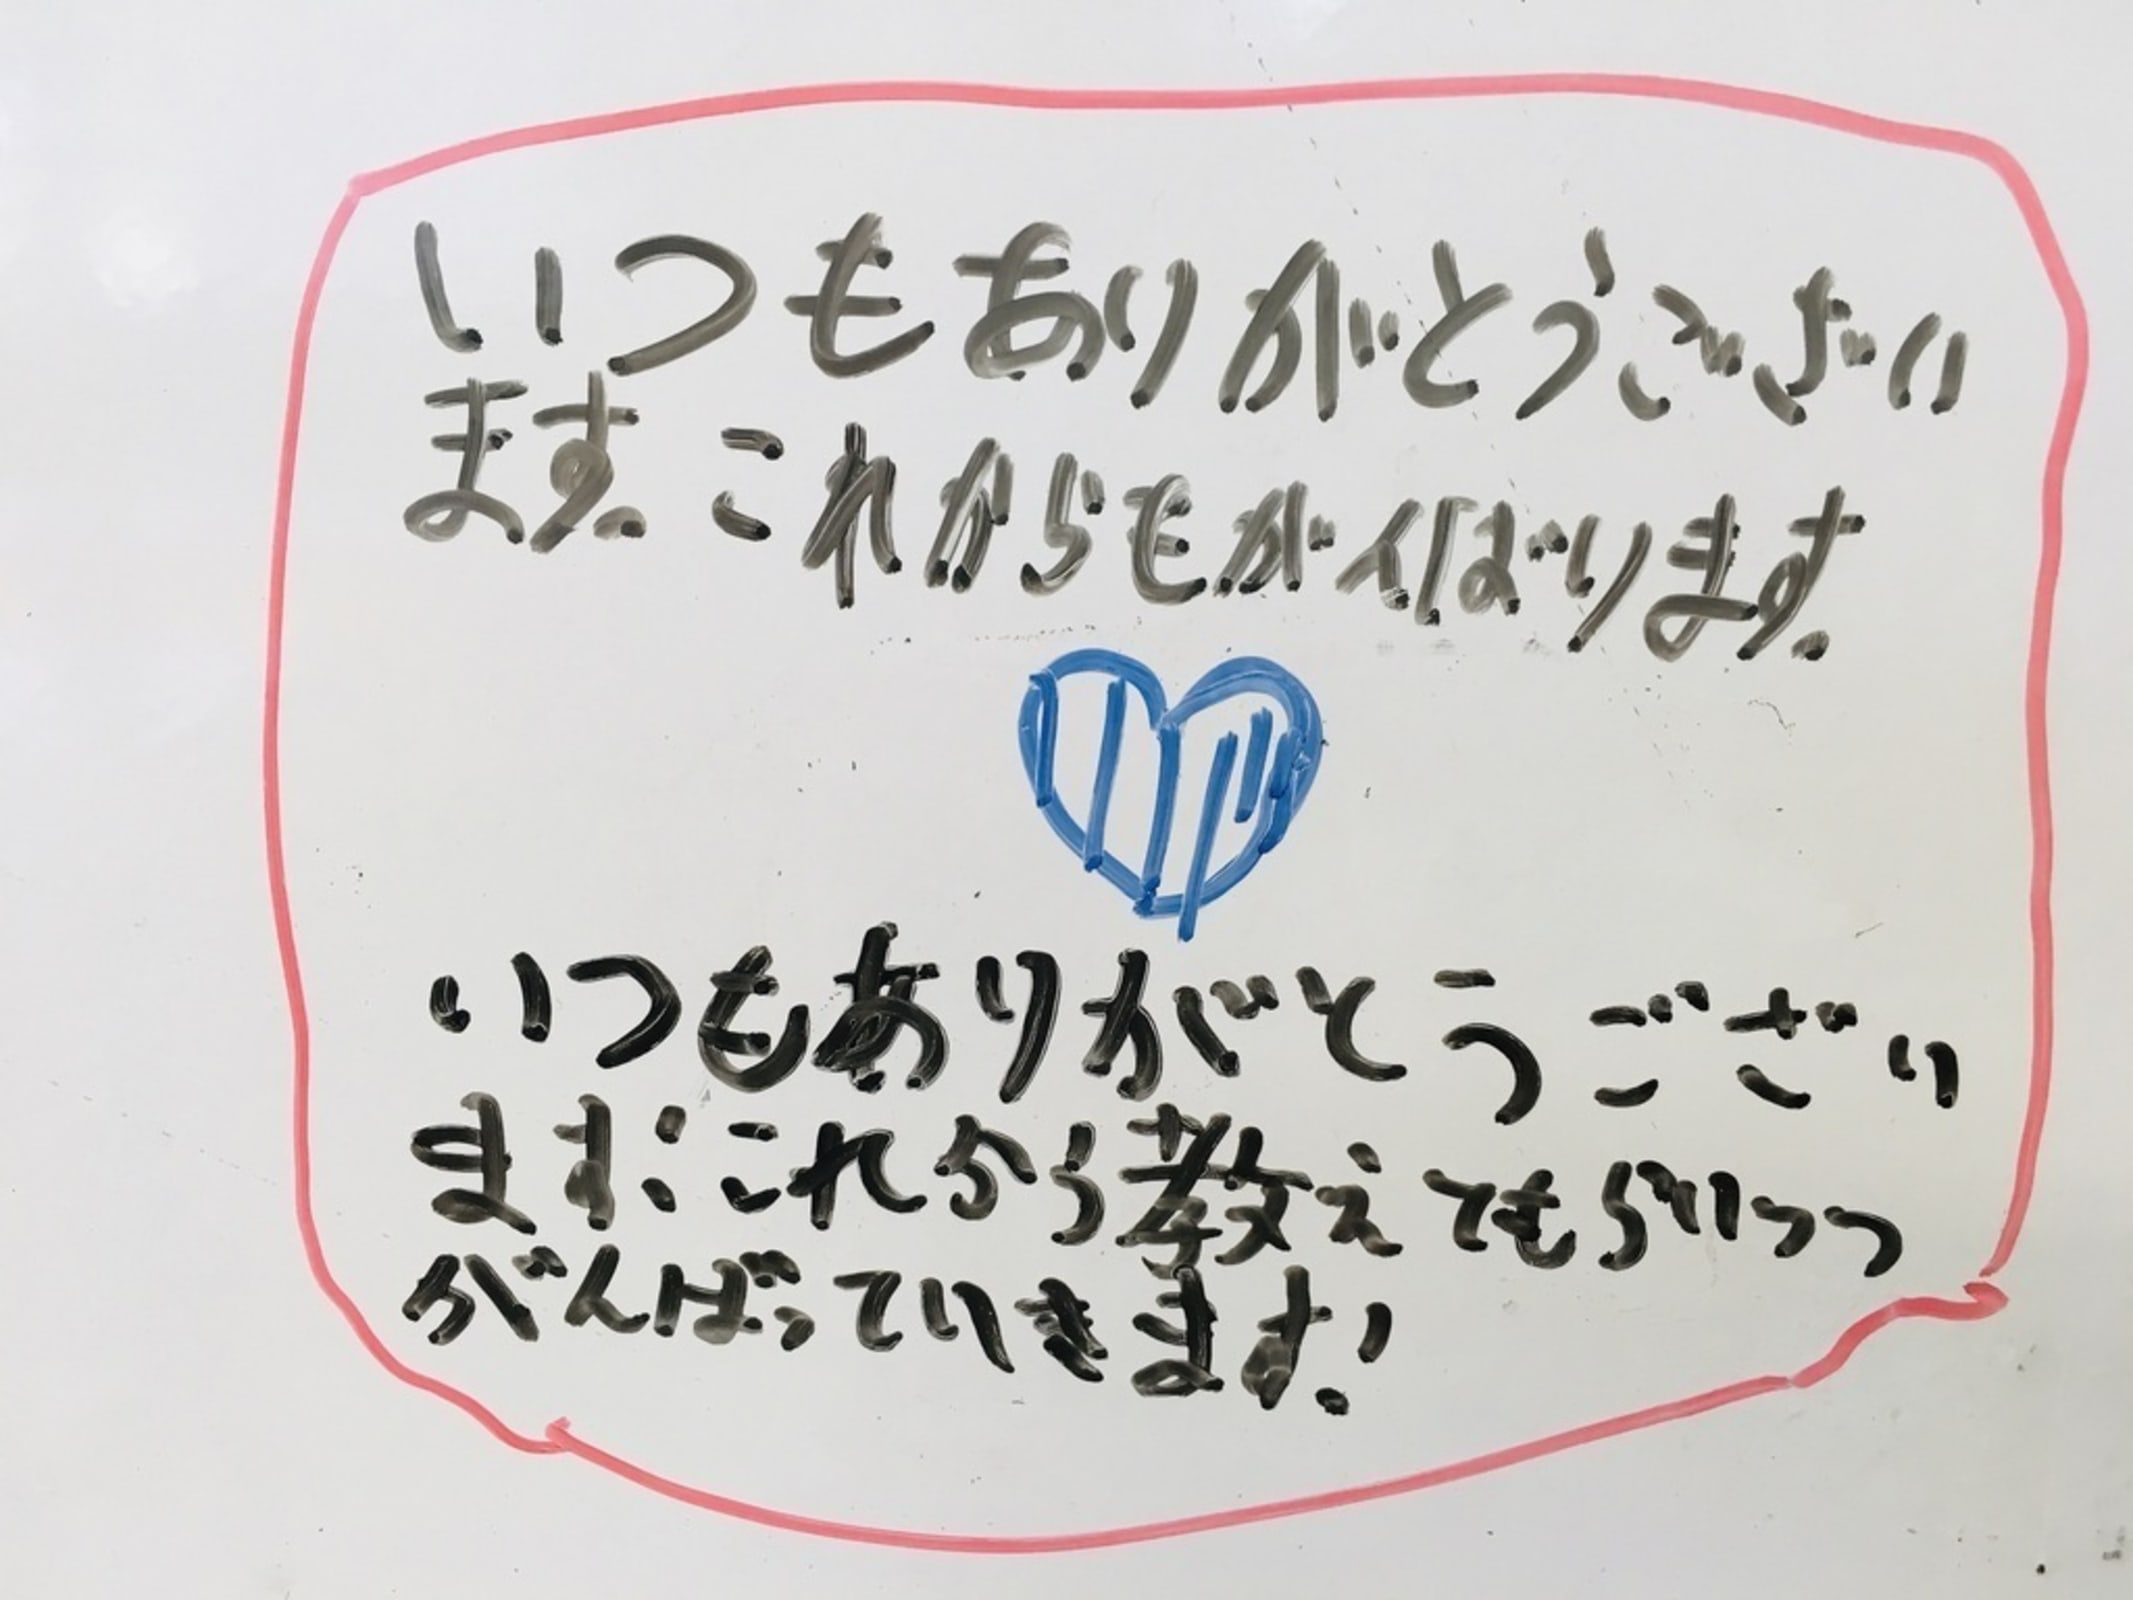 いつもありがとうござい
ます。これからもがんばります。
いつもありがとうござい
ます。これから教えてもらいつつ
がんばっていきます!